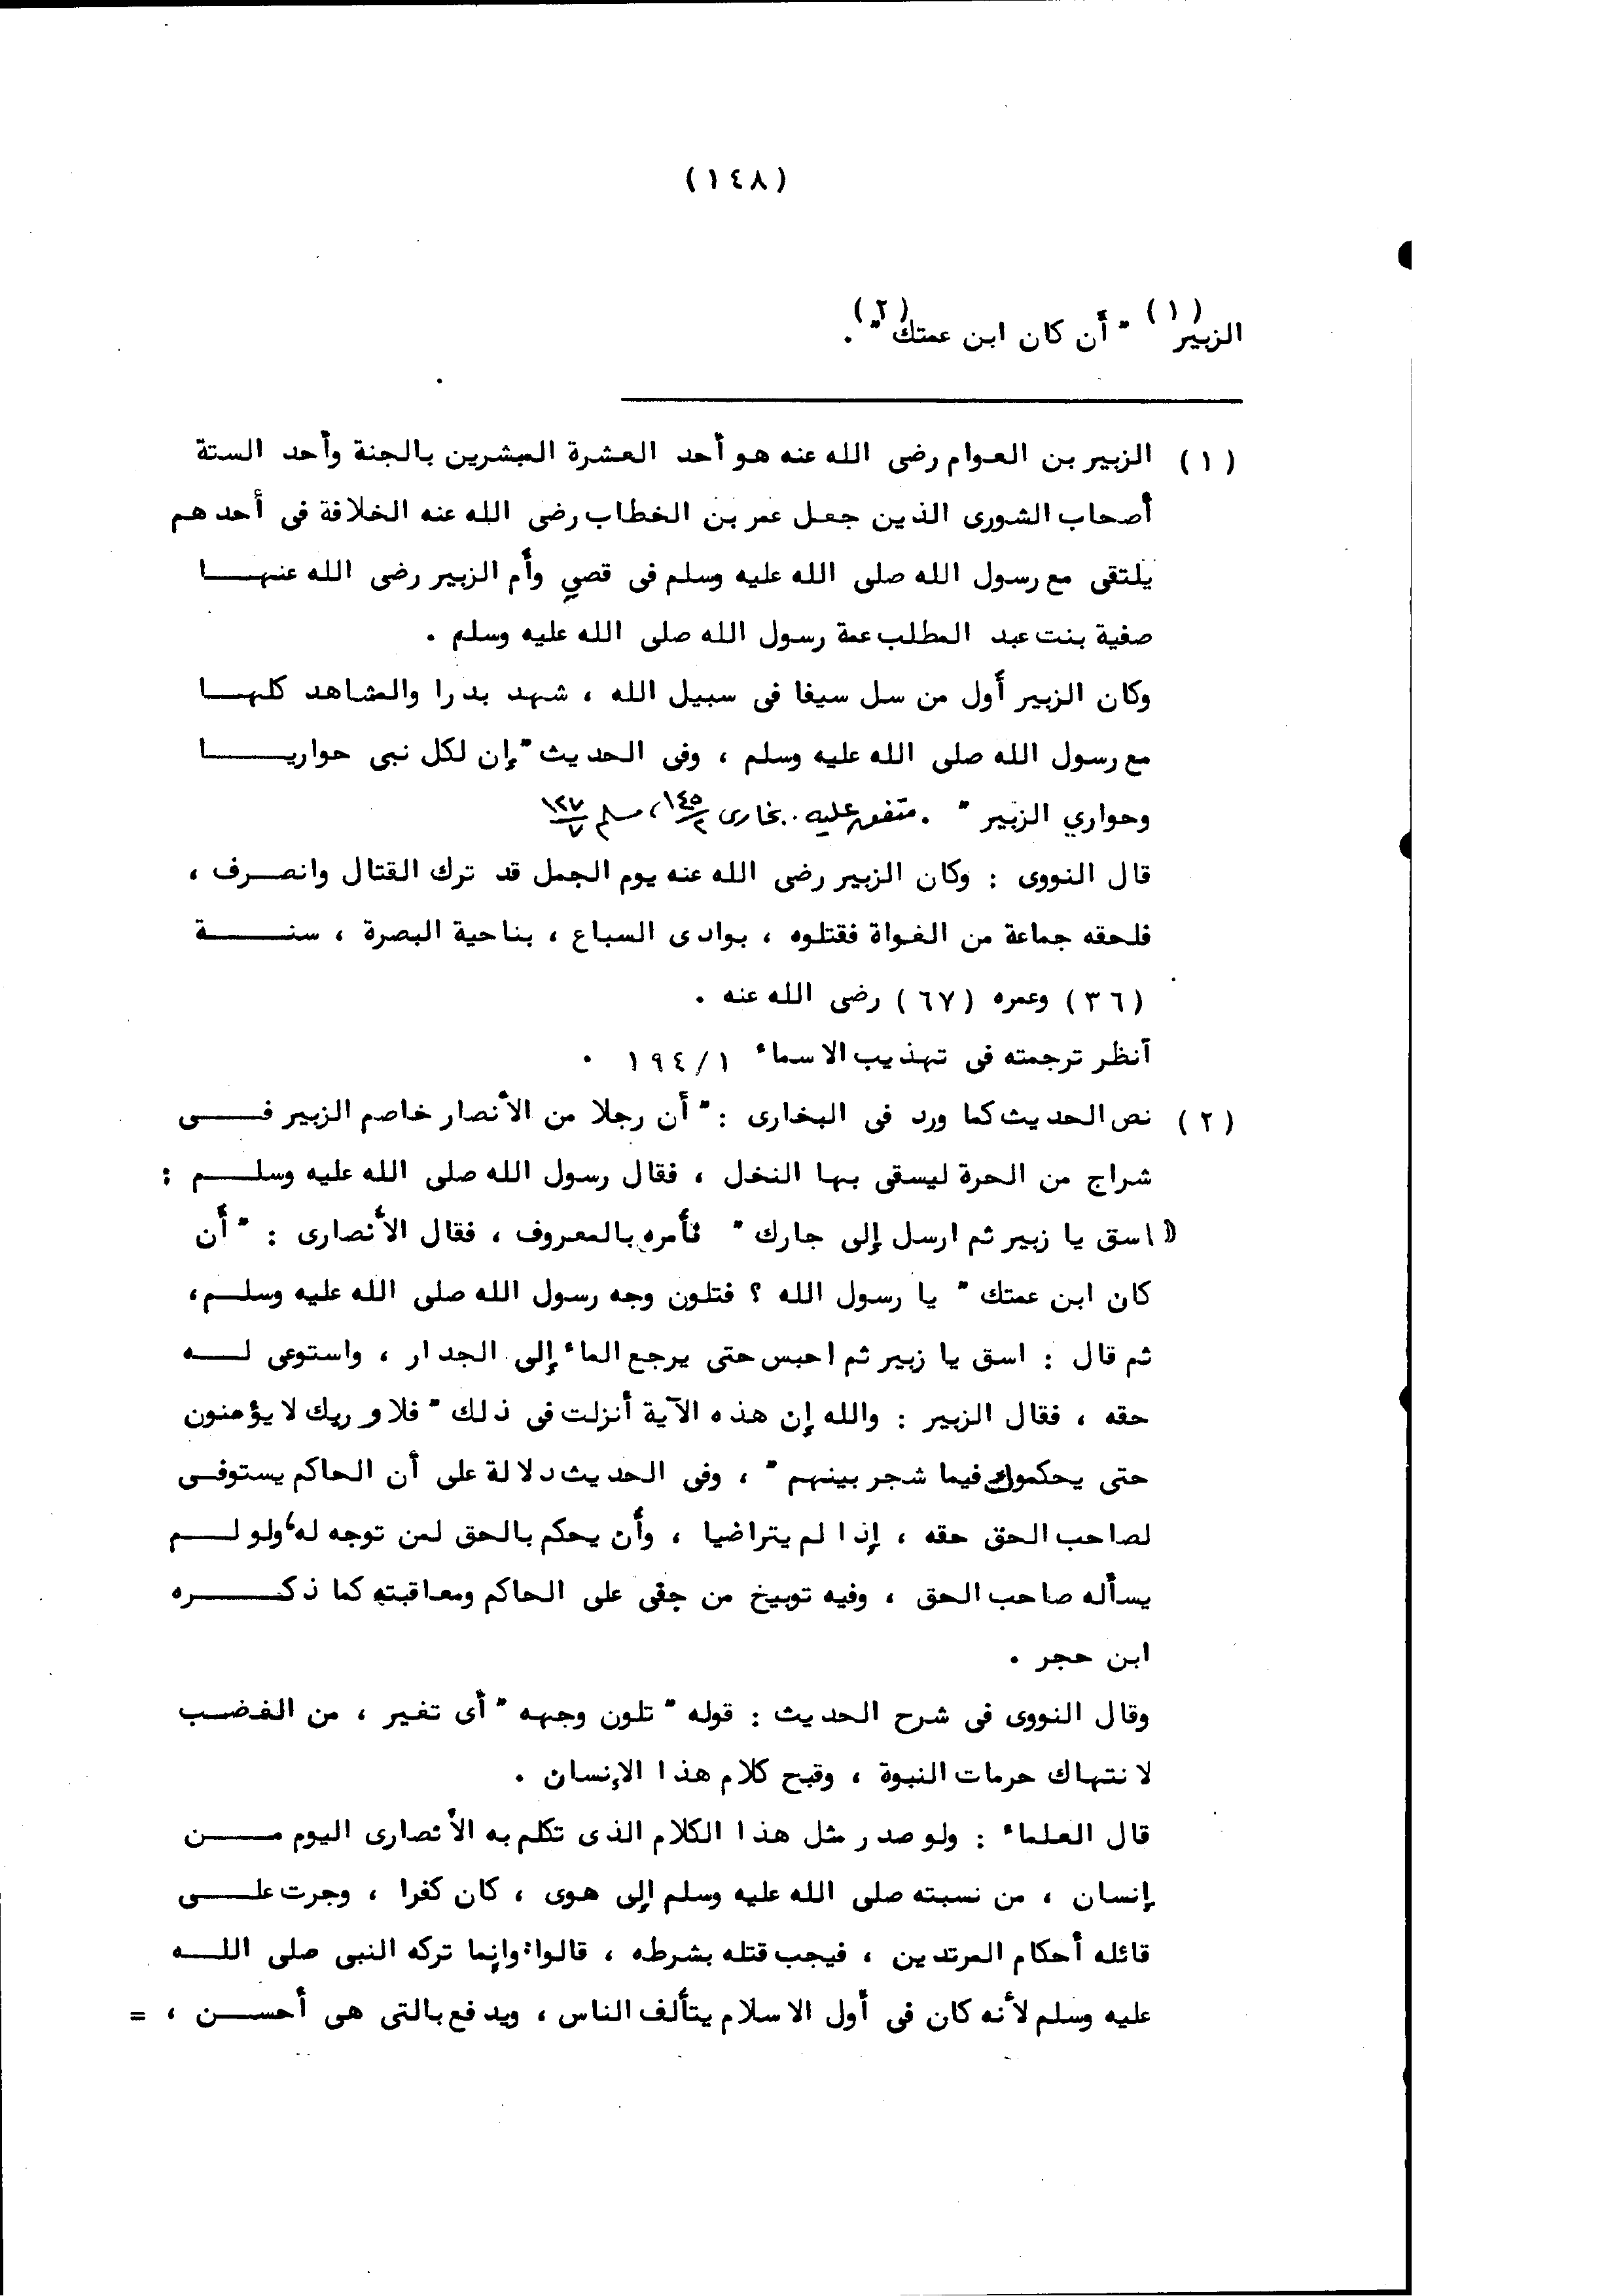 (١٤٨)
الزبير (١) " أن كان ابن عمتك " (٢) .
(١) الزبير بن العوام رضى الله عنه هو أحد العشرة المبشرين بالجنة وأحد الستة
أصحاب الشورى الذين جعل عمر بن الخطاب رضى الله عنه الخلافة فى أحدهم
يلتقى مع رسول الله صلى الله عليه وسلم فى قصي وأم الزبير رضى الله عنهــا
صفية بنت عبد المطلب عمة رسول الله صلى الله عليه وسلم .
وكان الزبير أول من سل سيفا فى سبيل الله ، شهد بدرا والمشاهد كلهــا
مع رسول الله صلى الله عليه وسلم ، وفى الحديث " إن لكل نبى حواريــا
وحواري الزبير " . متفق عليه . بخارى ١٤٥/٢ ، مسلم ١٢٧/٧
قال النووى : وكان الزبير رضى الله عنه يوم الجمل قد ترك القتال وانصرف ،
فلحقه جماعة من الغواة فقتلوه ، بوادى السباع ، بناحية البصرة ، سنــة
(٣٦) وعمره (٦٧) رضى الله عنه .
أنظر ترجمته فى تهذيب الاسماء ١٩٤/١ .
(٢) نص الحديث كما ورد فى البخارى : " أن رجلا من الأنصار خاصم الزبير فــى
شراج من الحرة ليسقى بها النخل ، فقال رسول الله صلى الله عليه وسلــم :
" اسق يا زبير ثم ارسل إلى جارك " فأمره بالمعروف ، فقال الأنصارى : " أن
كان ابن عمتك " يا رسول الله ؟ فتلون وجه رسول الله صلى الله عليه وسلـم ،
ثم قال : اسق يا زبير ثم احبس حتى يرجع الماء إلى الجدار ، واستوعى لــه
حقه ، فقال الزبير : والله إن هذه الآية أنزلت فى ذلك " فلا وربك لا يؤمنون
حتى يحكموك فيما شجر بينهم " ، وفى الحديث دلالة على أن الحاكم يستوفـى
لصاحب الحق حقه ، إذا لم يتراضيا ، وأن يحكم بالحق لمن توجه له ، ولو لــم
يسأله صاحب الحق ، وفيه توبيخ من جفى على الحاكم ومعاقبته كما ذكــره
ابن حجر .
وقال النووى فى شرح الحديث : قوله " تلون وجهه " أى تغير ، من الغضـب
لا نتهاك حرمات النبوة ، وقبح كلام هذا الإنسان .
قال العلماء : ولو صدر مثل هذا الكلام الذى تكلم به الأنصارى اليوم مــن
إنسان ، من نسبته صلى الله عليه وسلم إلى هوى ، كان كفرا ، وجرت علــى
قائله أحكام المرتدين ، فيجب قتله بشرطه ، قالوا : وإنما تركه النبى صلى اللــه
عليه وسلم لأنه كان فى أول الاسلام يتألف الناس ، ويدفع بالتى هى أحســن ، =